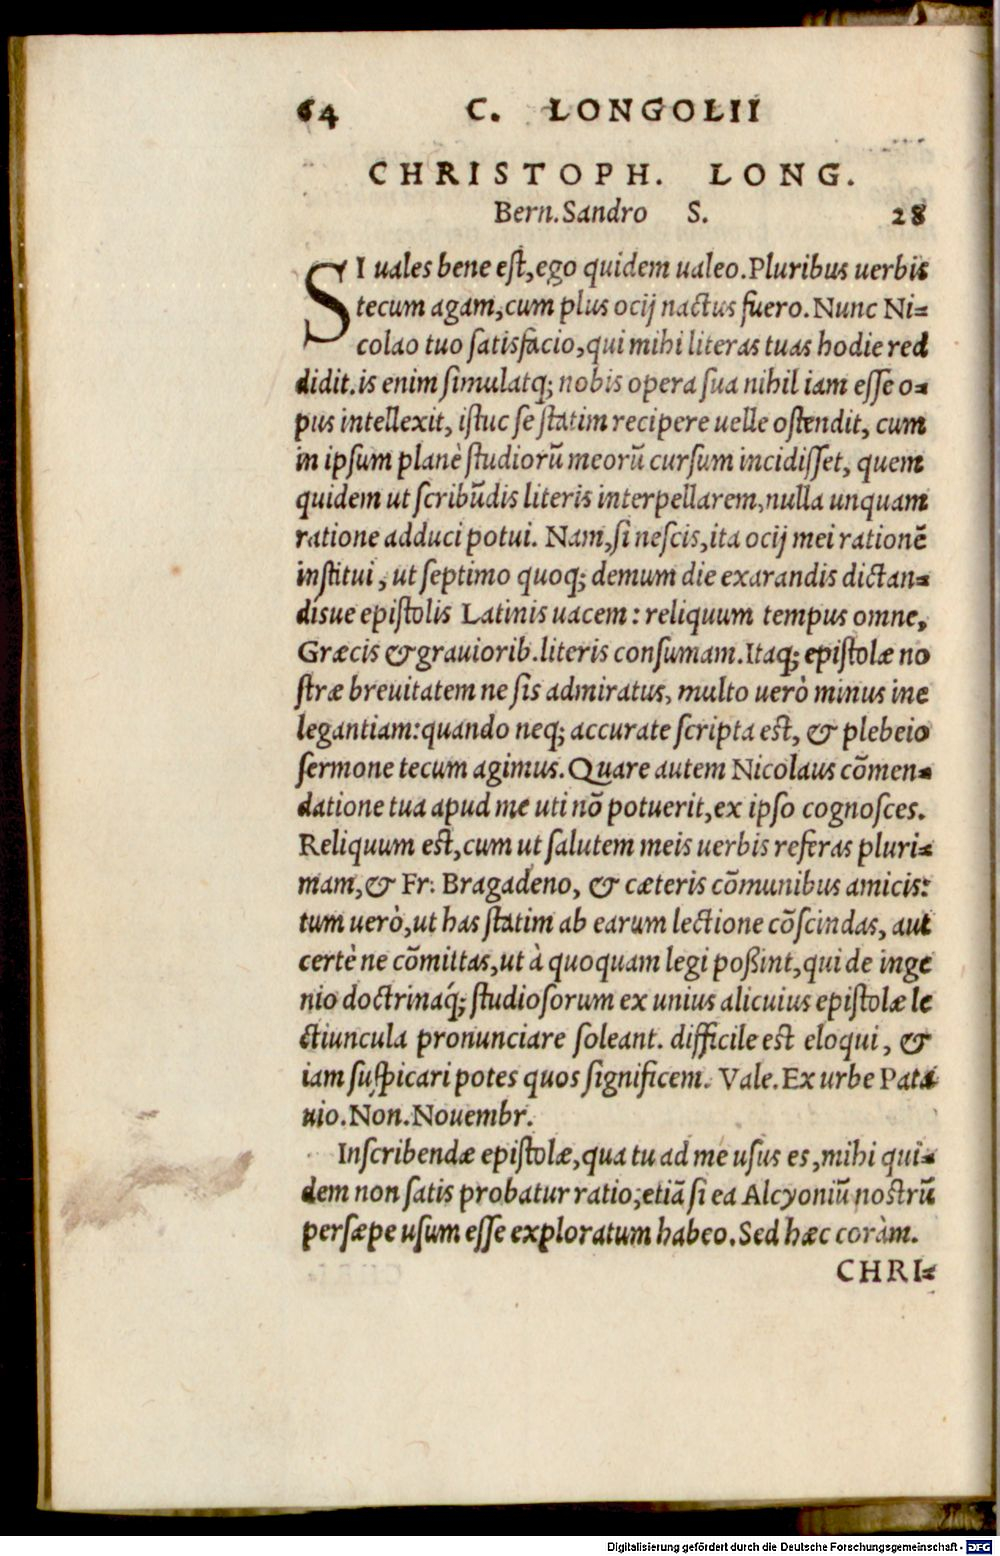 64 C. LONGOLII
CHRISTOPH. LONG.
Bern. Sandro S. 28
SI uales bene est, ego quidem ualeo. Pluribus uerbis
tecum agam, cum plus ocij nactus fuero. Nunc Ni-
colao tuo satisfacio, qui mihi literas tuas hodie red
didit. is enim simulatq; nobis opera sua nihil iam esse o-
pus intellexit, istuc se statim recipere uelle ostendit, cum
in ipsum planè studiorũ meorũ cursum incidisset, quem
quidem ut scribũdis literis interpellarem, nulla unquam
ratione adduci potui. Nam, si nescis, ita ocij mei rationẽ
institui, ut septimo quoq; demum die exarandis dictan-
disue epistolis Latinis uacem: reliquum tempus omne,
Græcis & grauiorib. literis consumam. Itaq; epistolæ no
stræ breuitatem ne sis admiratus, multo uerò minus ine
legantiam: quando neq; accurate scripta est, & plebeio
sermone tecum agimus. Quare autem Nicolaus cõmen-
datione tua apud me uti nõ potuerit, ex ipso cognosces.
Reliquum est, cum ut salutem meis uerbis referas pluri-
mam, & Fr. Bragadeno, & cæteris cõmunibus amicis:
tum uerò, ut has statim ab earum lectione cõscindas, aut
certè ne cõmittas, ut à quoquam legi poßint, qui de inge
nio doctrinaq́; studiosorum ex unius alicuius epistolæ le
ctiuncula pronunciare soleant. difficile est eloqui, &
iam suspicari potes quos significem. Vale. Ex urbe Pata
uio. Non. Nouembr.
Inscribendæ epistolæ, qua tu ad me usus es, mihi qui-
dem non satis probatur ratio; etiã si ea Alcyoniũ nostrũ
persæpe usum esse exploratum habeo. Sed hæc coràm.
CHRI-
Digitalisierung gefördert durch die Deutsche Forschungsgemeinschaft - DFG